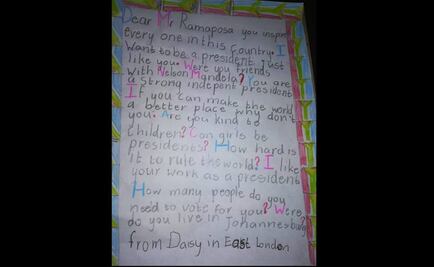 Dear Mr Ramaposa you inspire
every one in this country. I
want to be a president just
like you. Were you friends
with Nelson Mandela? You are
a strong indepent president
If, you can make the world
a better place why don't
you. Are you kind to
children? Can girls be
presidents? How hard is
it to rule the world? I like
your work as a president
How many people do you
need to vote for you? Were
do you live in Johannesburg?
from Daisy in East London